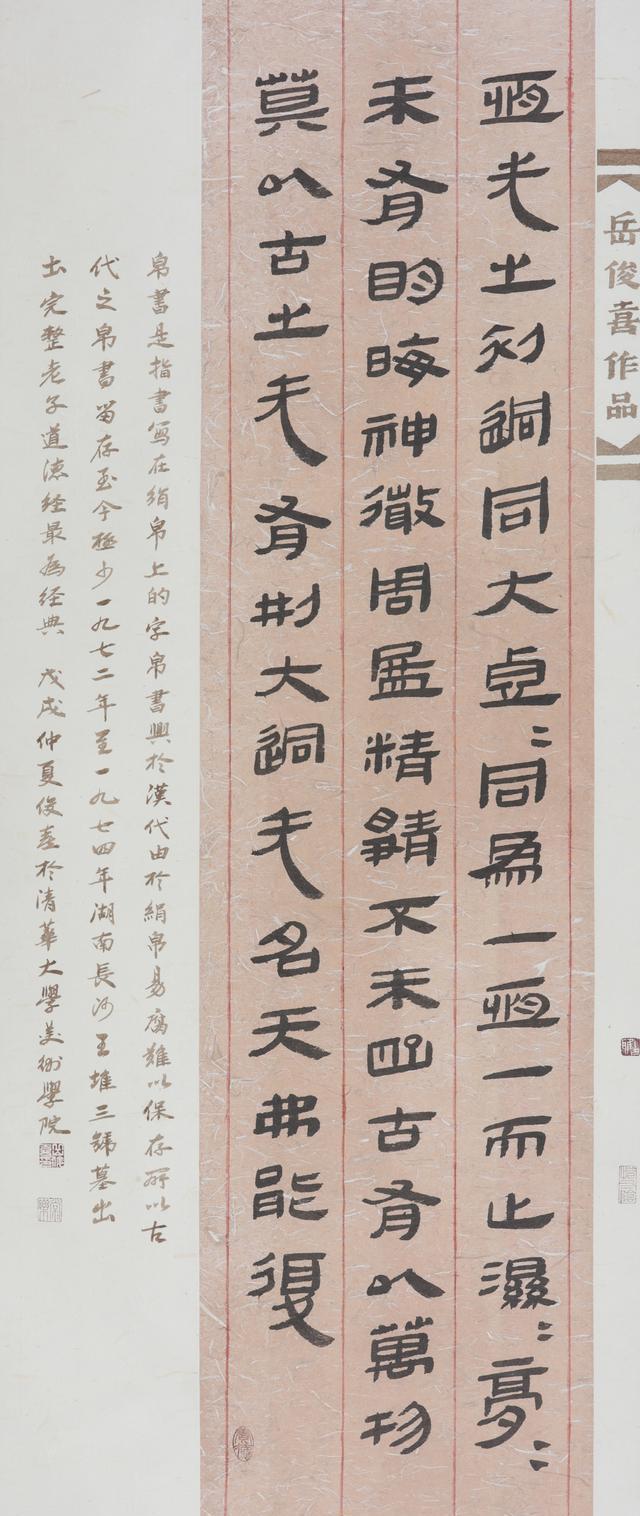 岳俊喜作品
恆无之初迥同大虛=同為一恆一而止濕=夢=
未有明晦神微周盈精靜不未巸古有以萬物
莫以古之无有刑大迥无名天弗能復
帛書是指書寫在絹帛上的字帛書興於漢代由於絹帛易腐難以保存所以古
代之帛書留存至今極少一九七二年至一九七四年湖南長沙王堆三號墓出
土完整老子道德经最為经典 戊戌仲夏俊喜於清華大學美術學院